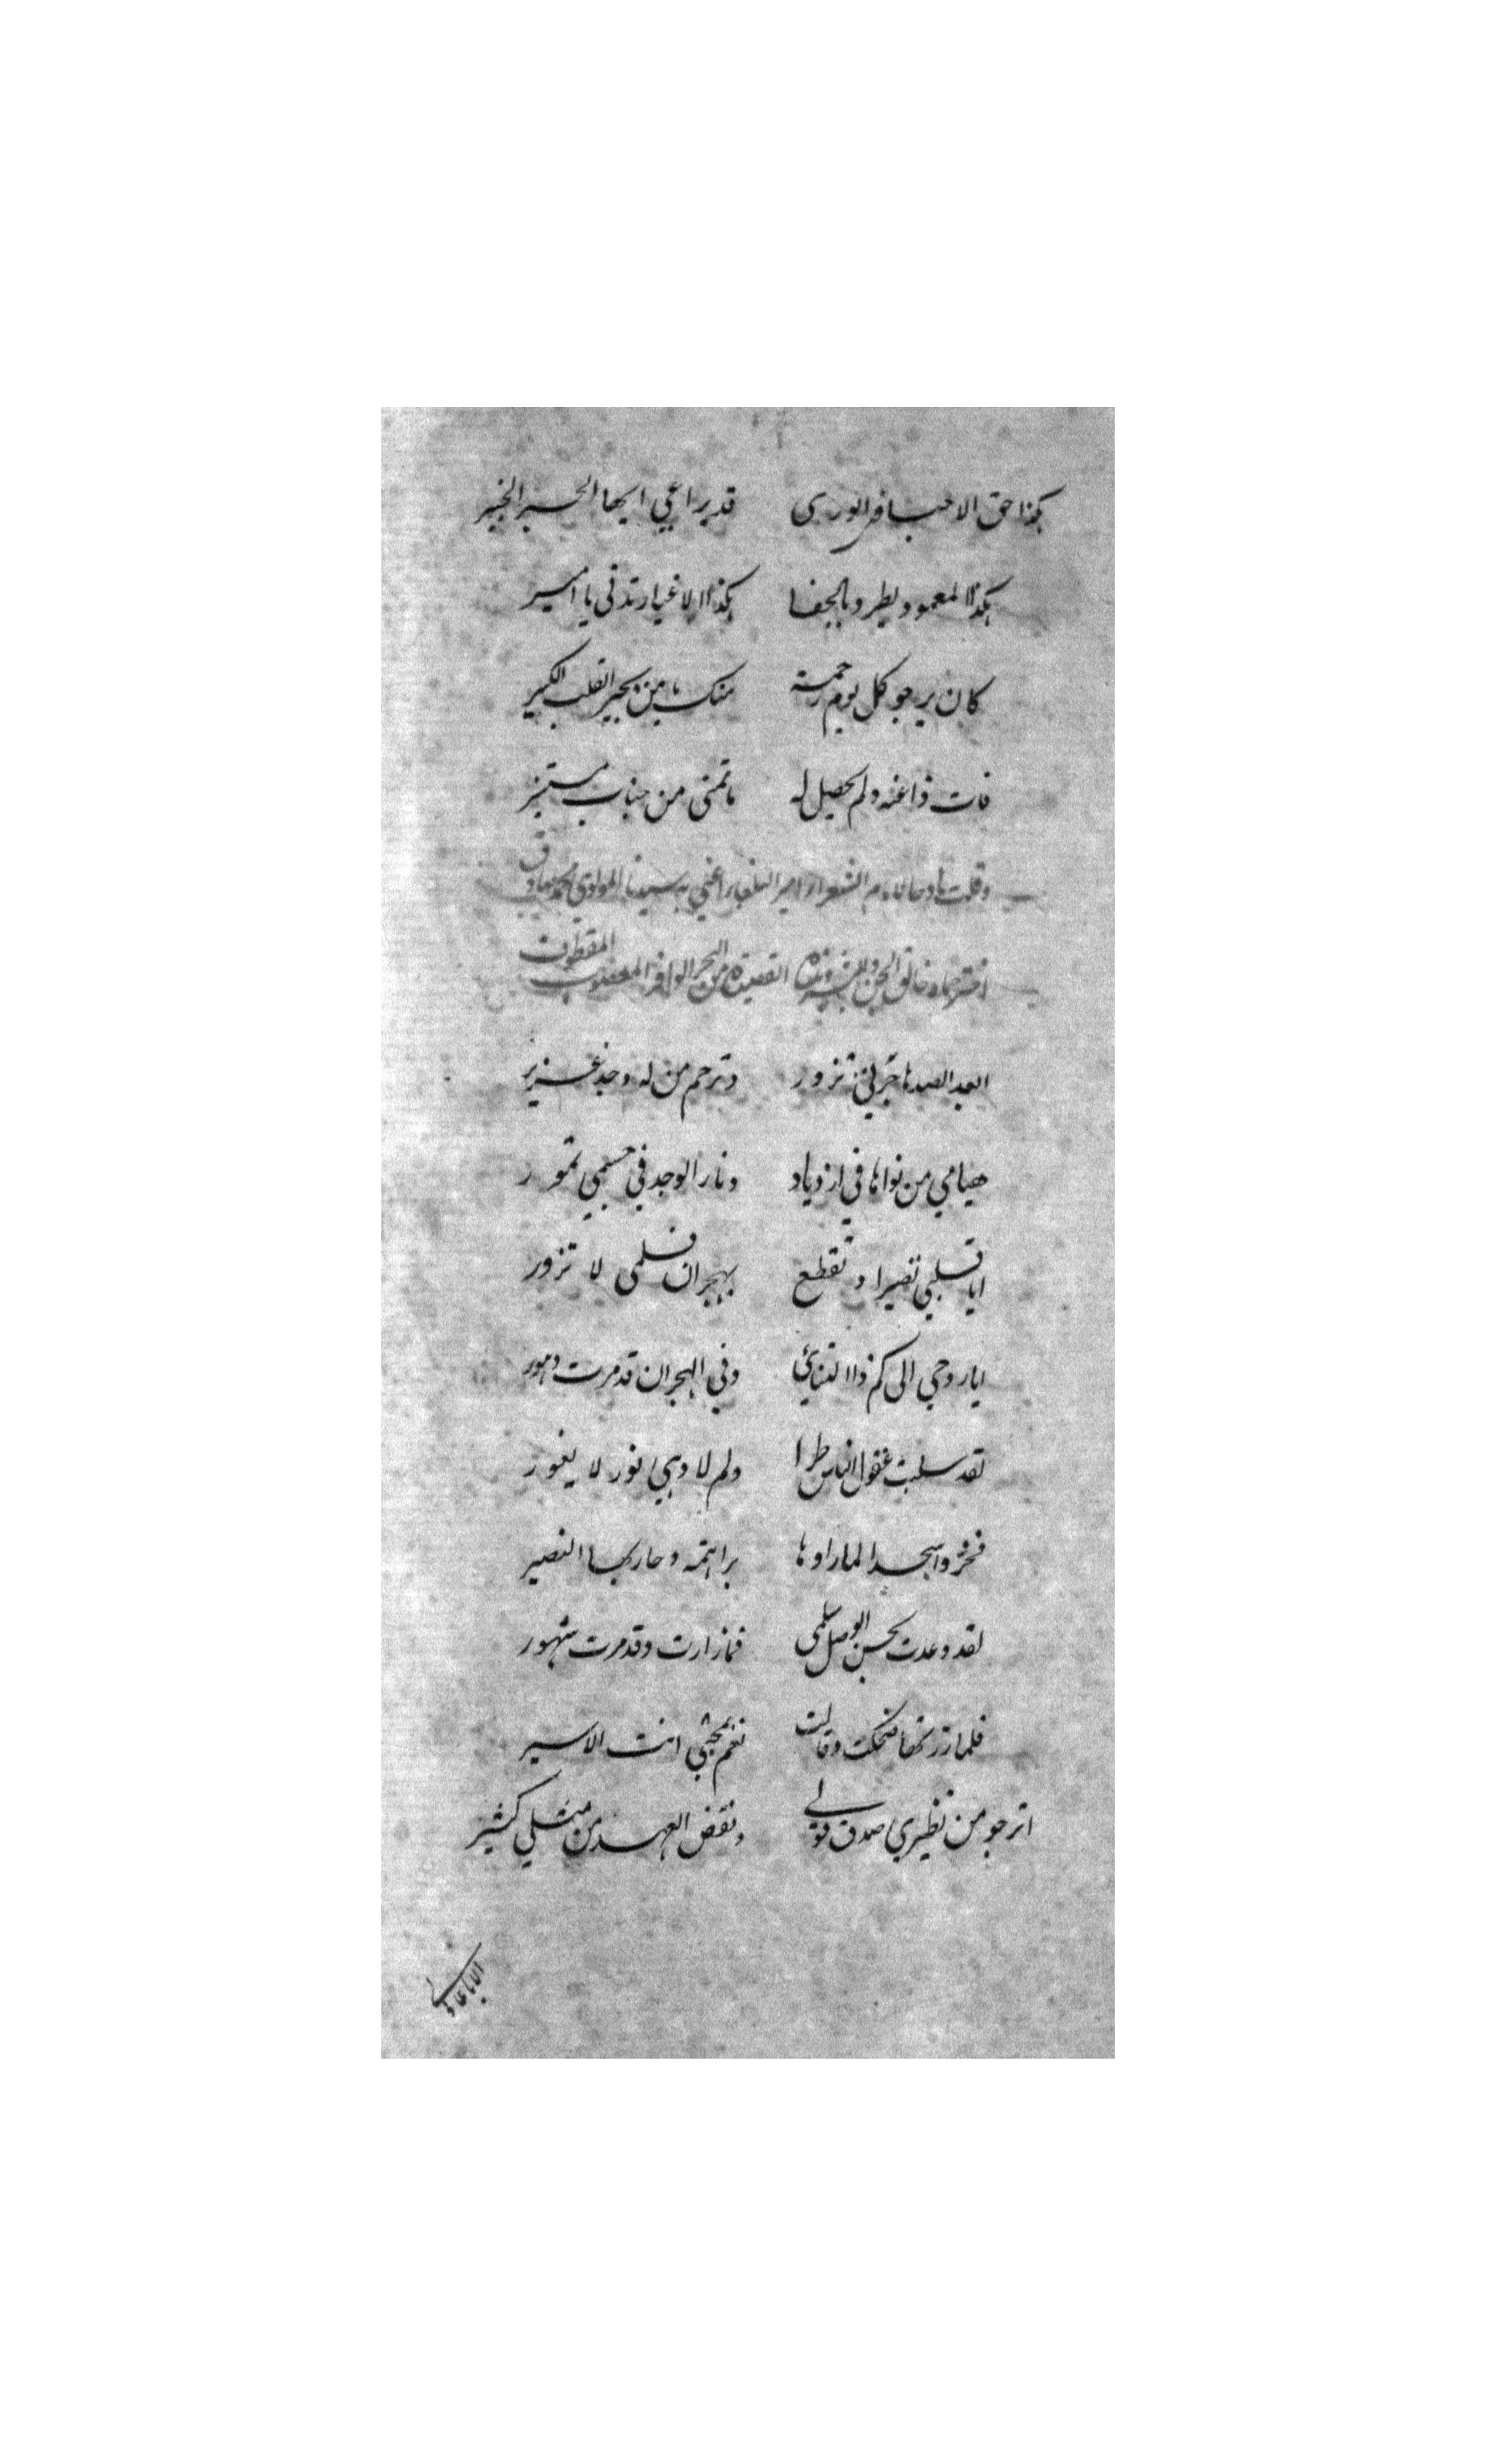 هكذا حق الاحبا في الورى قد يراعي ايها الحبر الخبير
هكذا المعمود يطرد بالجفا هكذا الاغيار تدني يا امير
كان يرجو كل يوم رحمة منك يا من يجبر القلب الكسير
فات ذا عنه ولم يحصل له ما تمنى من جناب مستنير
وقلت مادحا امام الشعراء امير البلغاء اعني به سيدنا المولوي محمد
خالق الجن والبشر وهذه القصيدة من البحر الوافر المعضوب المقطوف
ابعد الصد هاجرتي تزور وترحم من له وجد غزير
هيامي من نواها في ازدياد ونار الوجد في جسمي تمور
ايا قلبي تصبر او تقطع بهجران فسلمى لا تزور
ايا روحي الى كم ذا التنائي وفي الهجران قد مرت دهور
لقد سلبت عقول الناس طرا ولم لا وهي نور لا يغور
فخروا سجدا لما راوها براهمة وحار بها البصير
لقد وعدت بحسن الوصل سلمى فما زارت وقد مرت شهور
فلما زرتها ضحكت وقالت نعم بمحبتي انت الاسير
اترجو من نظيري صدق قول ونقض العهد من مثلي كثير